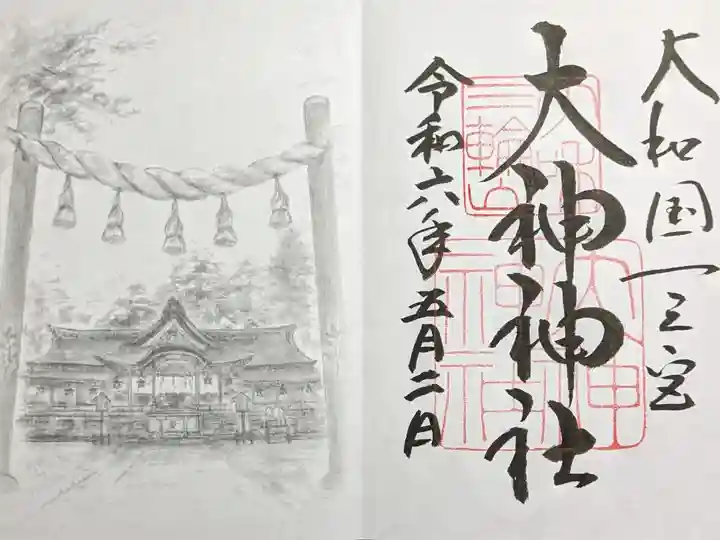 大和国一之宮
大神神社
令和六年五月二日
三輪山
大神神社